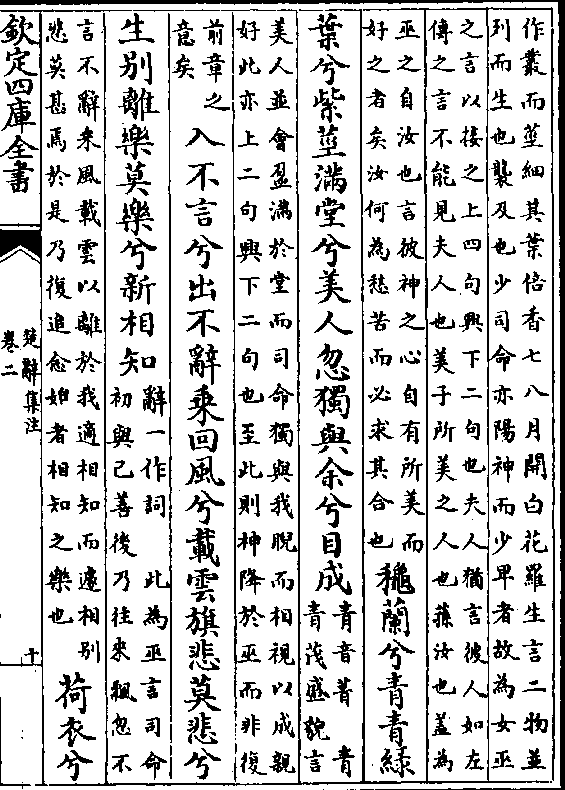 作叢而莖細其葉倍香七八月開白花羅生言二物並
列而生也襲及也少司命亦陽神而少卑者故為女巫
之言以接之上四句興下二句也夫人猶言彼人如左
傳之言不能見夫人也美子所美之人也蓀汝也蓋為
巫之自汝也言彼神之心自有所美而
好之者矣汝何為愁苦而必求其合也
穐蘭兮青青綠
葉兮紫莖滿堂兮美人忽獨與余兮目成
青音菁青
青茂盛貌言
美人並會盈滿於堂而司命獨與我睨而相視以成親
好此亦上二句興下二句也至此則神降於巫而非復
前章之
意矣
入不言兮出不辭乘回風兮載雲旗悲莫悲兮
生別離樂莫樂兮新相知
辭一作詞　此為巫言司命
初與己善後乃往來飄忽不
言不辭乘風載雲以離於我適相知而遽相別
悲莫甚焉於是乃復追愈始者相知之樂也
荷衣兮
欽定四庫全書
楚辭集注
卷二
十